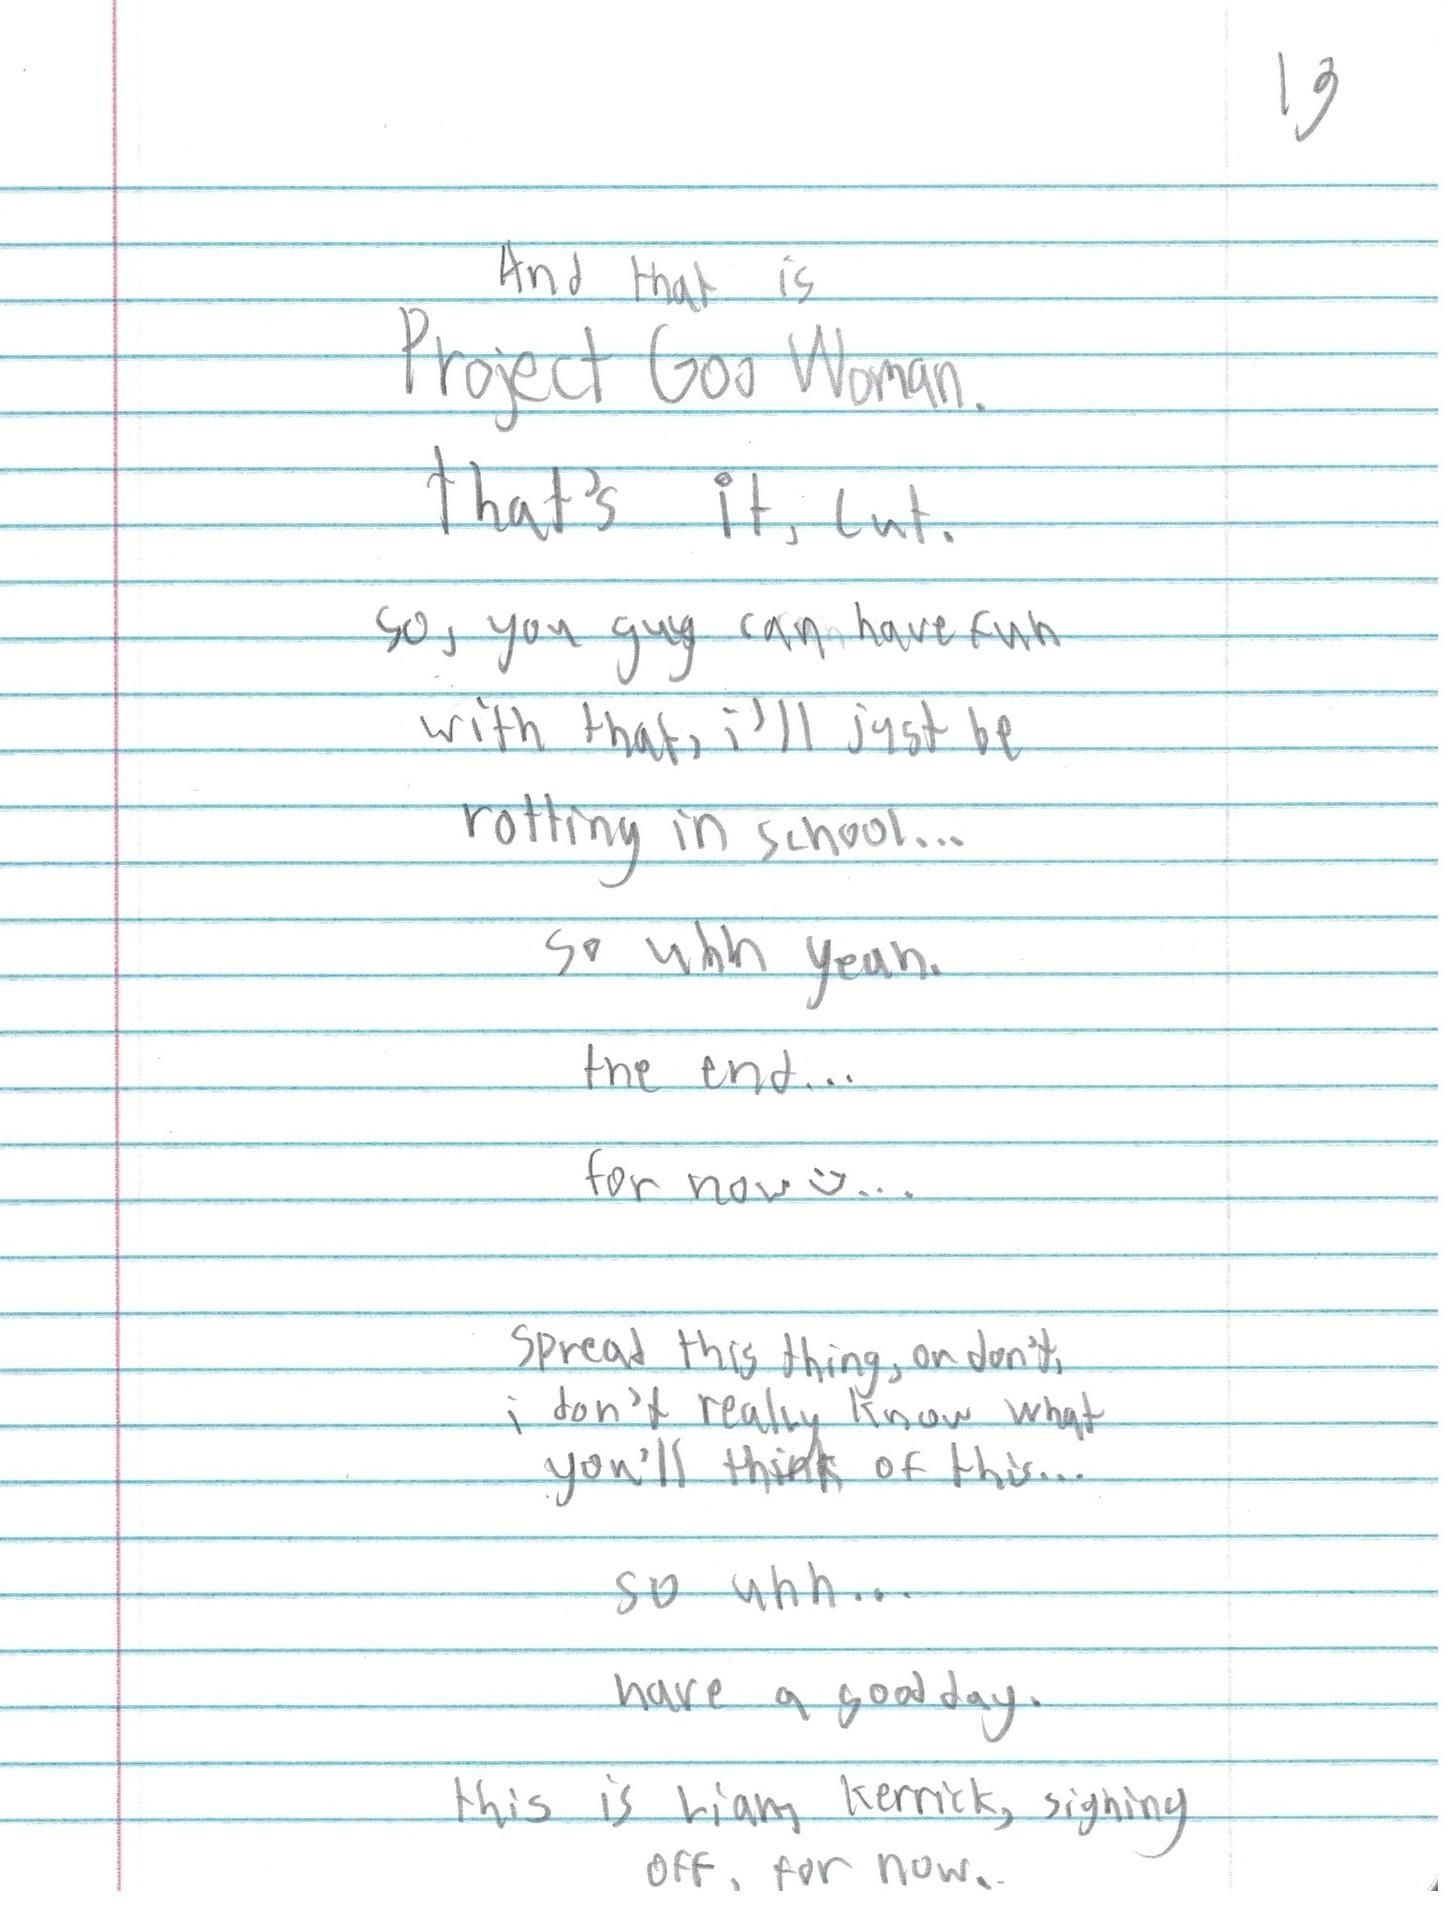 13
And that is
Project Goo Woman.
that's it, cut.
so, you guy can have fun
with that, i'll just be
rotting in school...
so uhh yeah.
the end...
for now :)...
Spread this thing, or don't,
i don't really know what
you'll think of this...
so uhh...
have a good day.
this is Liam Kerrick, signing
off, for now..